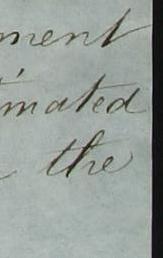 ment
timated
the